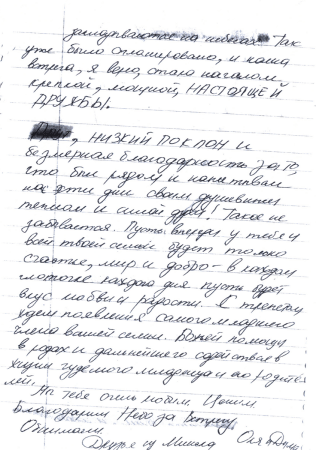 задумываются на небесах. Так
уже было спланировано, и наша
встреча, я верю, стала началом
крепкой, мощной, НАСТОЯЩЕЙ
ДРУЖБЫ.
, НИЗКИЙ ПОКЛОН и
безмерная благодарность за то,
что был рядом и напитывал
нас эти дни своим душевным
теплом и силой духа! Такое не
забывается. Пусть впереди у тебя и
всей твоей семьи будет только
счастье, мир и добро - в каждом
глоточке каждого дня пусть будет
вкус любви и радости. С трепетом
ждем появления самого младшего
члена вашей семьи. Божьей помощи
в родах и дальнейшего содействия в
жизни чудемого младенца и его родите
лей.
тебе очень любим. Ценим.
Благодарим Небо за Встречу.
Обнимаем.
Оля и Дима